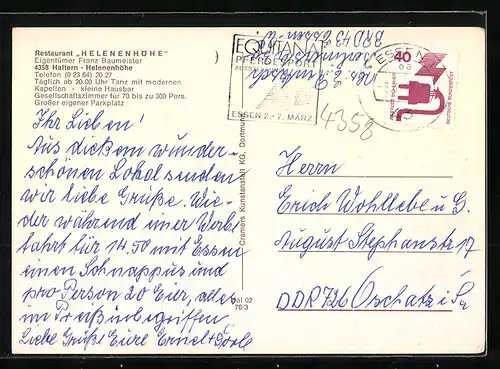 Restaurant „HELENENHÖHE"
Eigentümer Franz Baumeister
4358 Haltern - Helenenhöhe
Telefon (0 23 64) 20 27
Täglich ab 20.00 Uhr Tanz mit modernen
Kapellen - kleine Hausbar
Gesellschaftszimmer für 70 bis zu 300 Pers.
Großer eigener Parkplatz
Ihr Lieben!
Aus diesem wunder-
schönen Lokal senden
wir liebe Grüße. Wie-
der während einer Werbe
fahrt für 14.50 mit Essen
einen Schnappus und
pro Person 20 Eier, alles
im Preis inbegriffen
Liebe Grüße Eure Ernel +
Cramers Kunstanstalt KG, Dortmund
02
76/3
EQUITANA
PFERDESPORT
ESSEN 2.-7. MÄRZ
BRD 43 Essen
4358
ESSEN
40
DEUTSCHE BUNDESPOST
Herrn
Erich Wohllebe u G.
August Stephanstr 17
DDR 726 Oschatz i/Sa